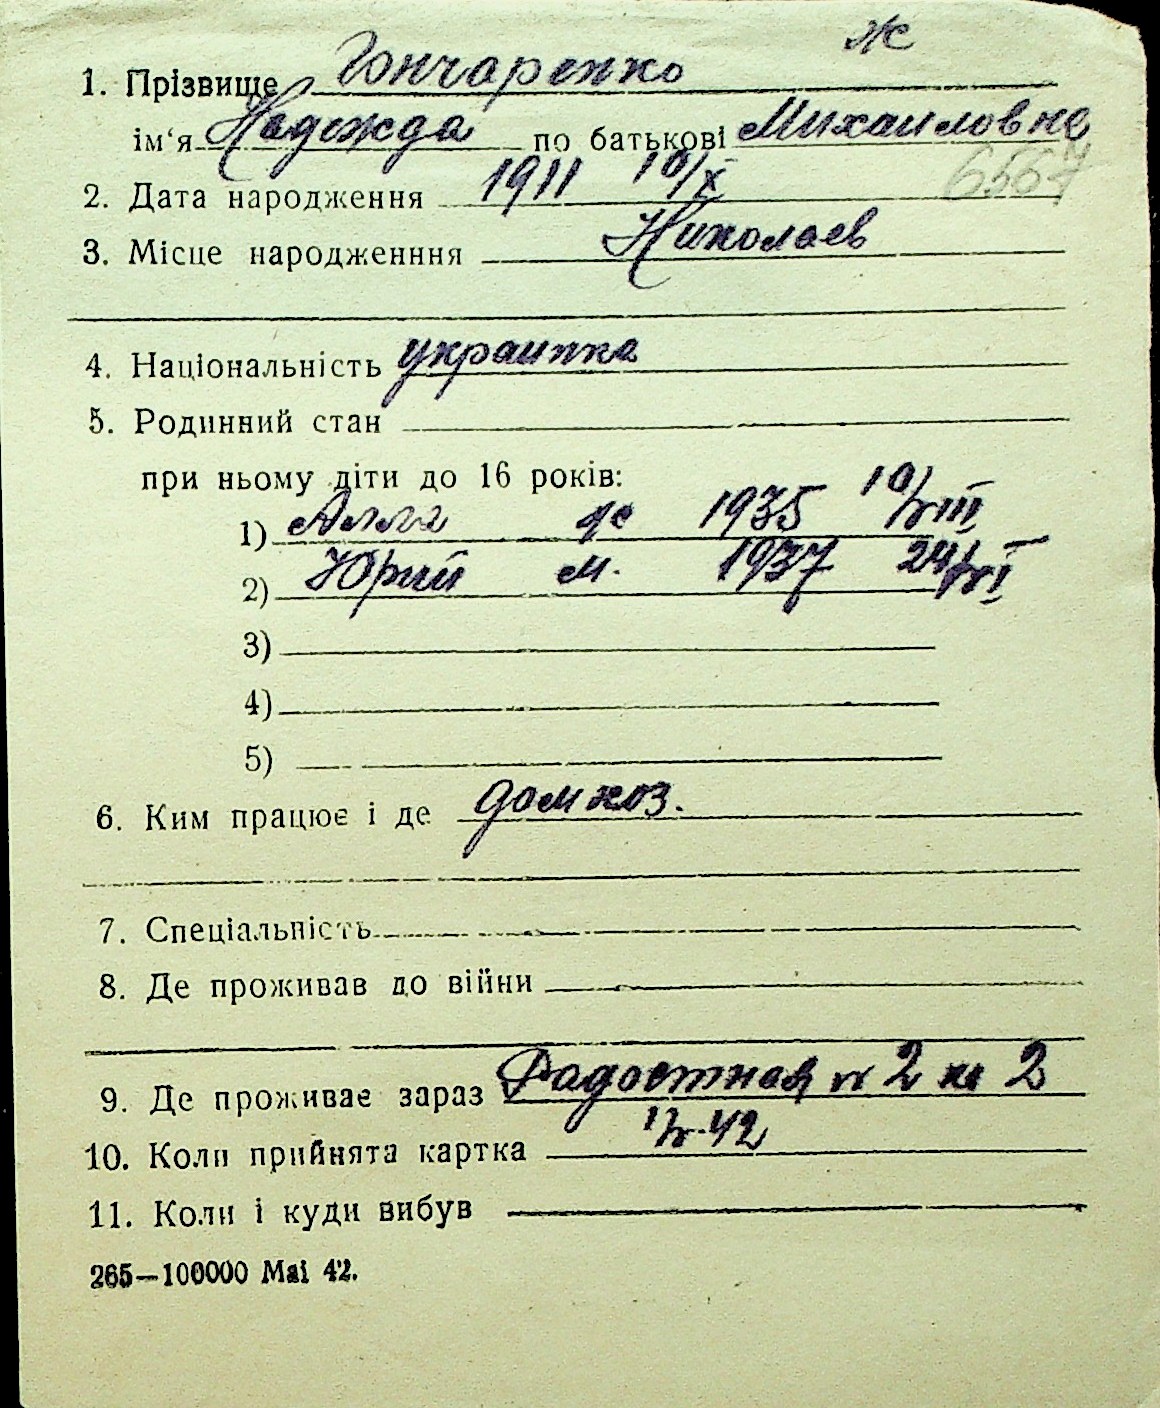 ж
1. Прізвище Гончаренко
ім‘я Надежда по батькові Михаиловна
6567
2. Дата народження 1911 10/X
3. Місце народженння Николаев
4. Національність украинка
5. Родинний стан
при ньому діти до 16 років:
1) Алла ж 1935 10/VIII
2) Юрий м. 1937 24/VI
3)
4)
5)
6. Ким працює і де домхоз.
7. Спеціальність
8. Де проживав до війни
9. Де проживає зараз Радостная 2 2
10. Коли прийнята картка 42
11. Коли і куди вибув
265—100000 Mai 42.